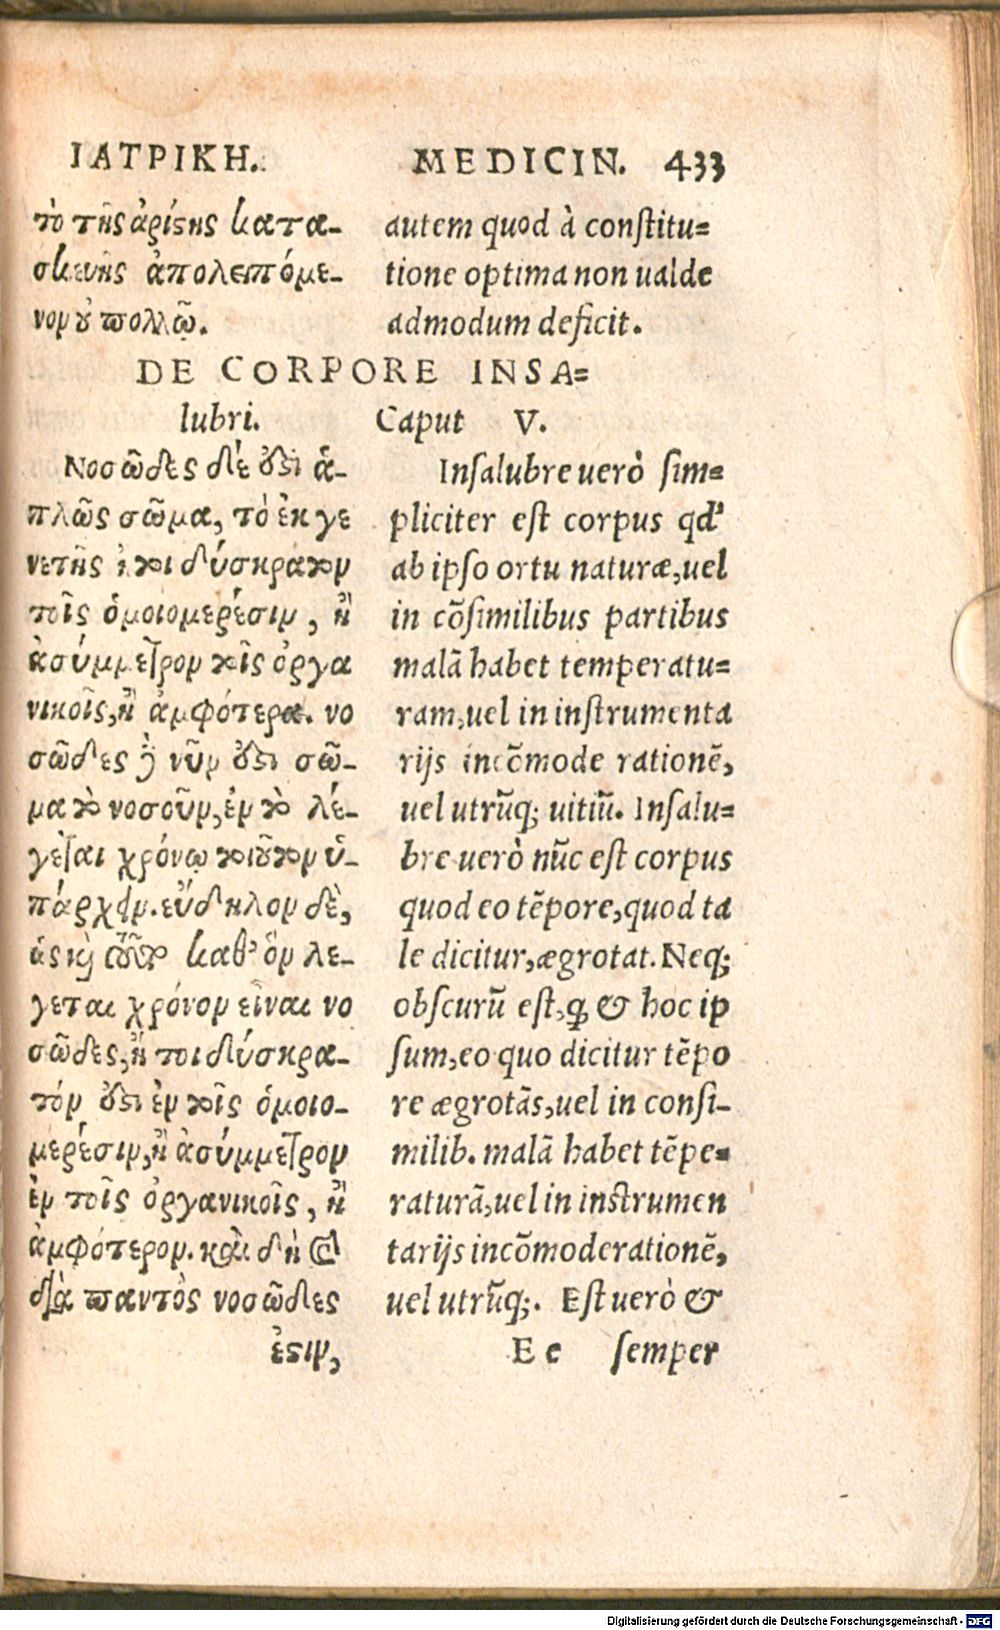 ΙΑΤΡΙΚΗ. MEDICIN. 433
τὸ τῆς ἀρίςης κατα-
σκευῆς ἀπολειπόμε-
νον ȣ πολλῷ.
autem quod à constitu=
tione optima non ualde
admodum deficit.
DE CORPORE INSA=
lubri. Caput V.
Νοσῶδες δέ ὅξι ἁ-
πλῶς σῶμα, τὸ ἐκ γε
νετῆς ἤτοι δύσκρατον
τοῖς ὁμοιομερέσιν, ἢ
ἀσύμμετρον τοῖς ὀργα
νικοῖς, ἢ ἀμφότερα. νο
σῶδες ἢ νῦν ὅξι σῶ-
μα τὸ νοσοῦν, ἐν τὸ λέ-
γεται χρόνῳ τοιȣ͂τον ὑ-
πάρχειν. εὔδηλον δὲ,
ὡς καὶ τοῦτο καθ' ὃν λε-
γεται χρόνον εἶναι νο
σῶδες, ἤ τοι δύσκρα-
τόν ὅξι ἐν τοῖς ὁμοιο-
μερέσιν, ἢ ἀσύμμετρον
ἐν τοῖς ὀργανικοῖς, ἢ
ἀμφότερον. καὶ δὴ καὶ
διὰ παντὸς νοσῶδες
ἐςιν,
Insalubre uerò sim=
pliciter est corpus qd'
ab ipso ortu naturæ, uel
in cõsimilibus partibus
malã habet temperatu=
ram, uel in instrumenta
rijs incõmode rationẽ,
uel utrũq; uitiũ. Insalu=
bre uerò nũc est corpus
quod eo tẽpore, quod ta
le dicitur, ægrotat. Neq;
obscurũ est, ꝙ & hoc ip
sum, eo quo dicitur tẽpo
re ægrotãs, uel in consi-
milib. malã habet tẽpe=
raturã, uel in instrumen
tarijs incõmoderationẽ,
uel utrũq;. Est uerò &
E e semper
Digitalisierung gefördert durch die Deutsche Forschungsgemeinschaft - DFG